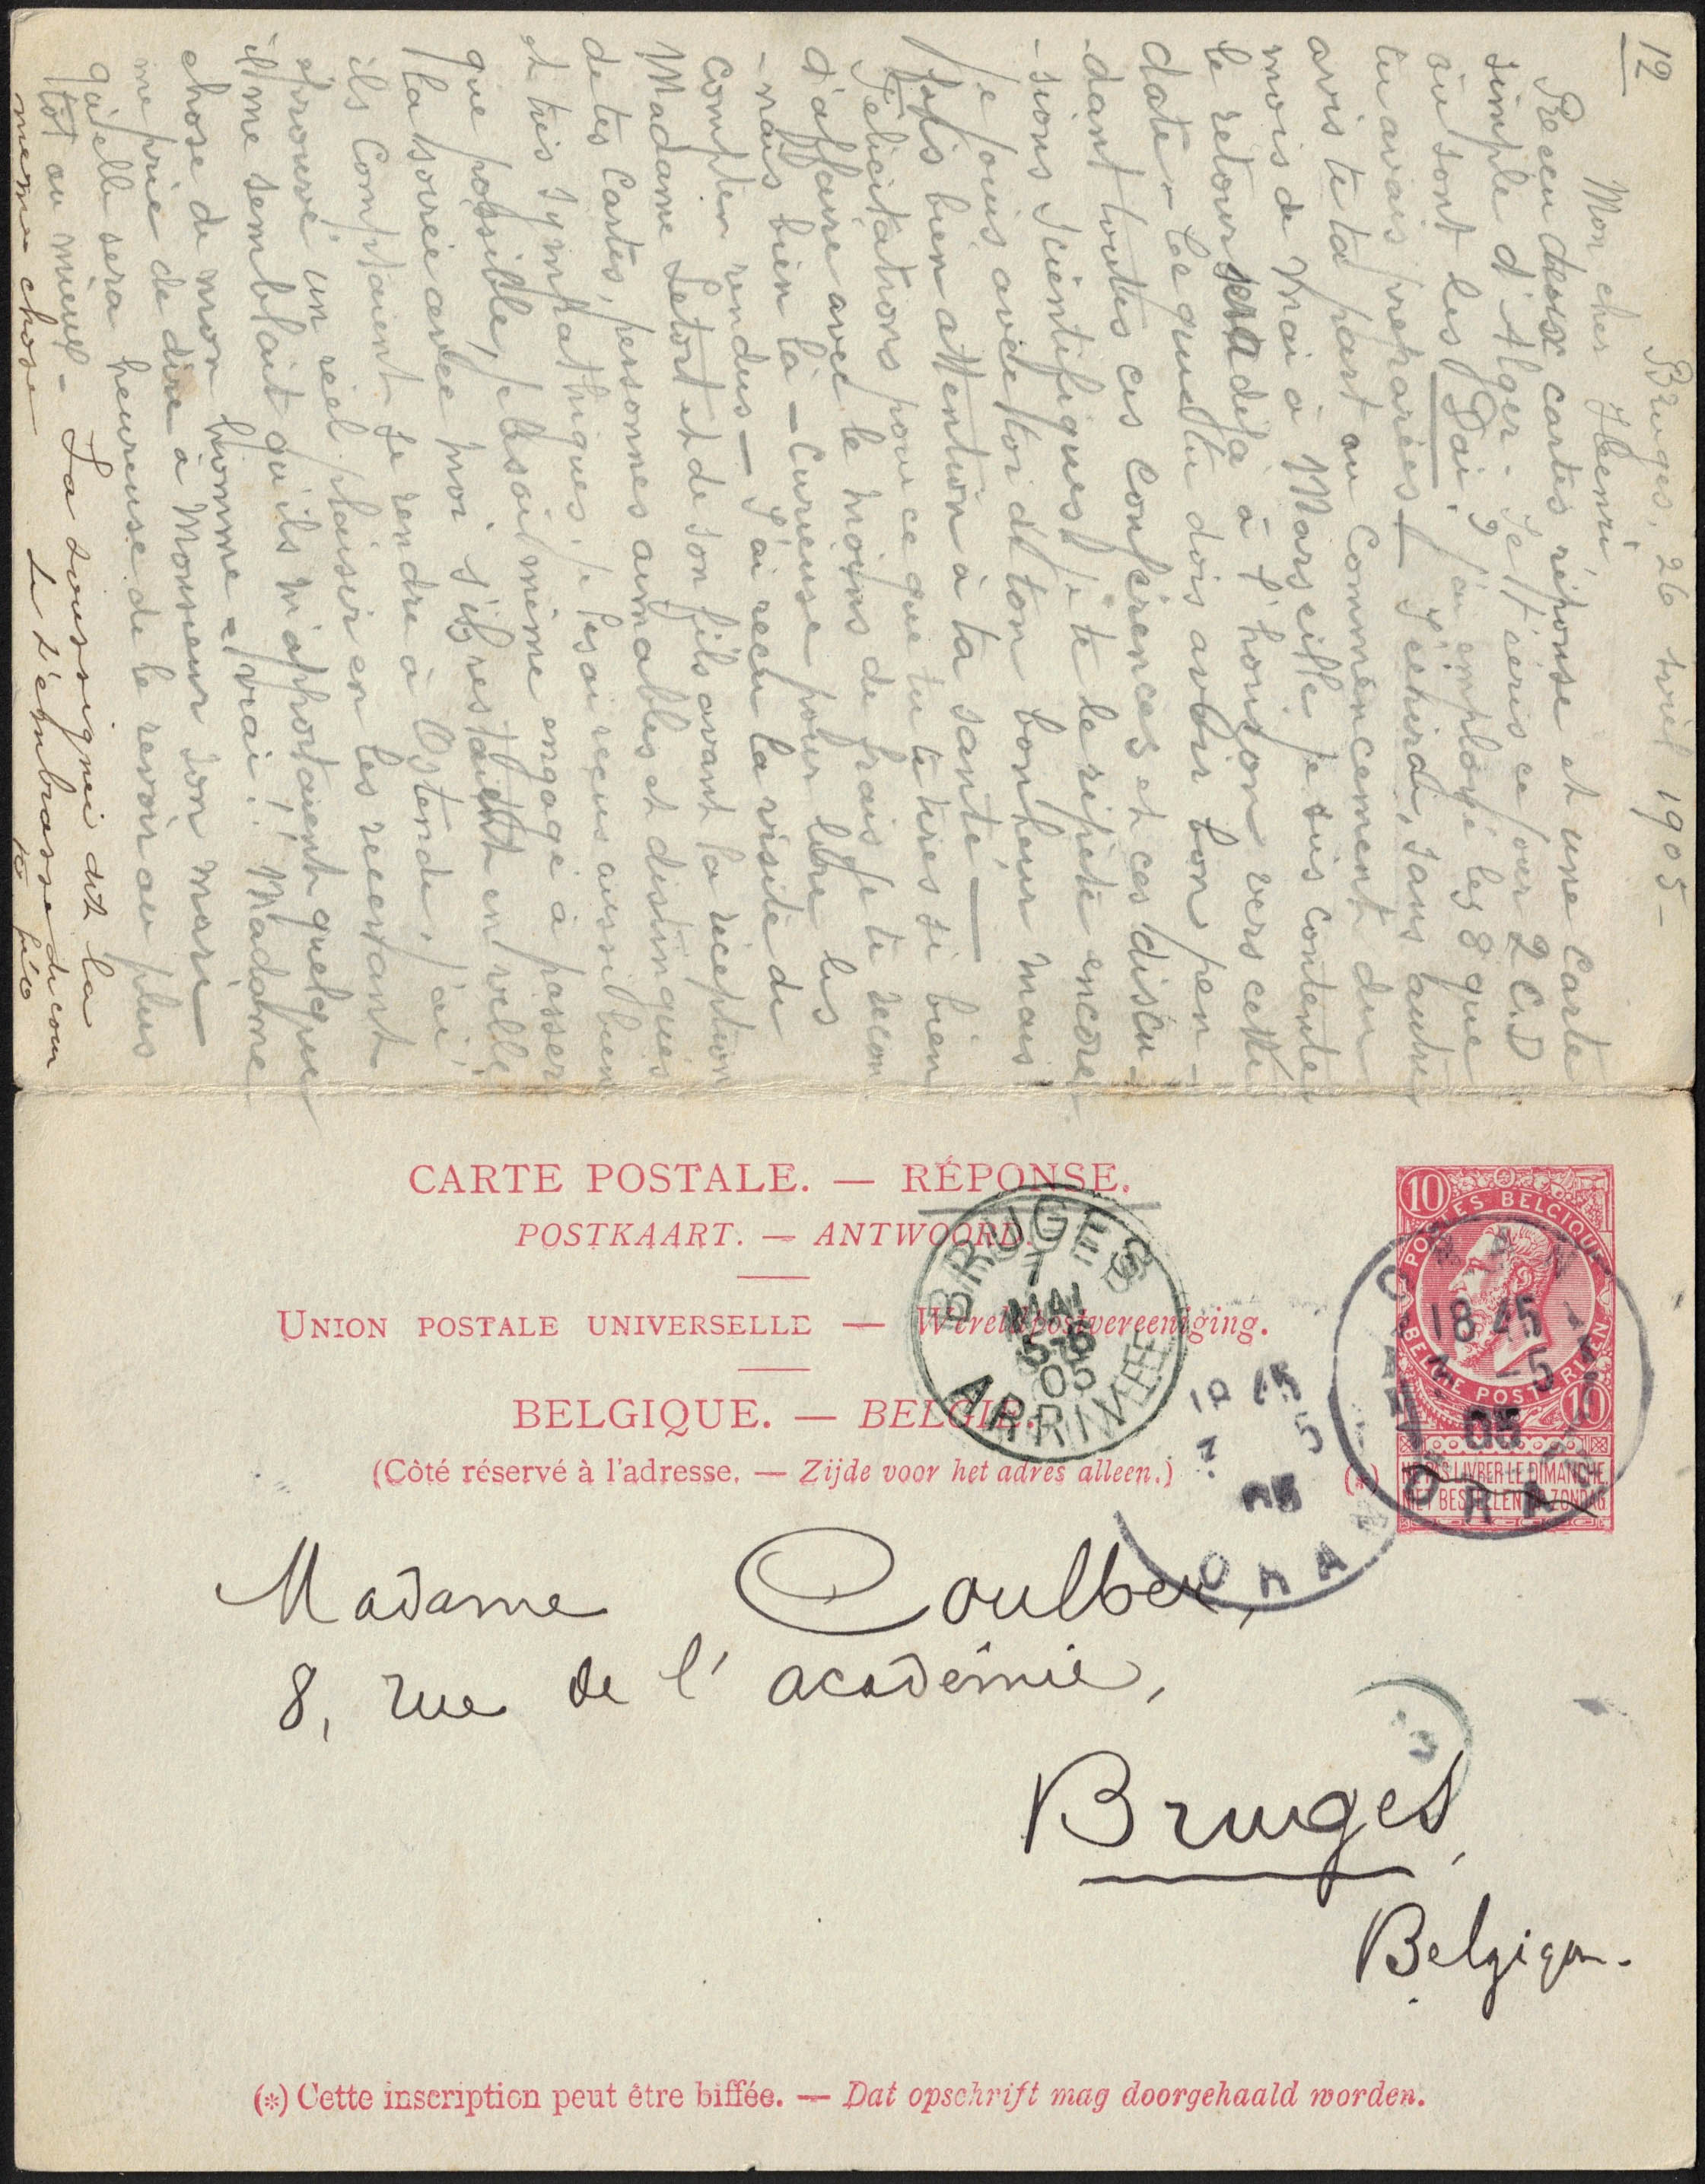 12
Bruges, 26 avril 1905-
Mon cher Henri
Recu deux cartes réponse et une carte
simple d'Alger. Je t'écris ce jour 2 C.D
où sont les Dai. ? J'ai employé les 8 que
tu avais préparées J'ex sans autre
avis de ta part au Commencement du
mois de Mai à Marseille, je suis contente
le retour sera déjà à l'horizon vers cette
date - Ce que tu dois avoir bon pen-
-dant toutes ces Conférences et ces discu-
-sions Scientifiques! Je te le répète encore
fais bien attention à ta santé —
Je jouis avec toi de ton bonheur mais
Félicitations pour ce que tu te tires si bien
d'affaire avec le moins de frais je te recon
-nais bien là - Curieuse pour lire les
Compter rendus - J'ai recu la visite de
Madame Letort et de son fils avant la réception
de tes cartes, personnes aimables et distingués
et très sympathiques, je les ai recus aussi bien
que possible, je les ai même engagé à passer
la soirée avec moi s'ils restaient en ville
ils Comptaient se rendre à Ostende, j'ai
éprouvé un réel plaisir en les recevant
il me semblait qu'ils m'apportaient quelque
chose de mon homme - vrai! Madame
me prie de dire à Monsieur son mari
qu'elle sera heureuse de le revoir au plus
tôt au mieux - La soussignée dit la
meme chose et t'embrasse de coeur
CARTE POSTALE. — RÉPONSE.
POSTKAART. — ANTWOORD.
UNION POSTALE UNIVERSELLE — Wereldpostvereeniging.
BELGIQUE. — BELGIE.
(Côté réservé à l'adresse. — Zijde voor het adres alleen.)
(*)
10
POSTES BELGIQUE
BELGIE POSTERIJEN
10
NE PAS LIVRER LE DIMANCHE.
NIET BESTELLEN OP ZONDAG.
BRUGES
7
MAI
5-6
05
ARRIVÉE
ORAN
18 45
-5
05
ORAN
5
ORA
Madame Coulber,
8, rue de l'académie,
Bruges,
Belgique.
(*) Cette inscription peut être biffée. — Dat opschrift mag doorgehaald worden.